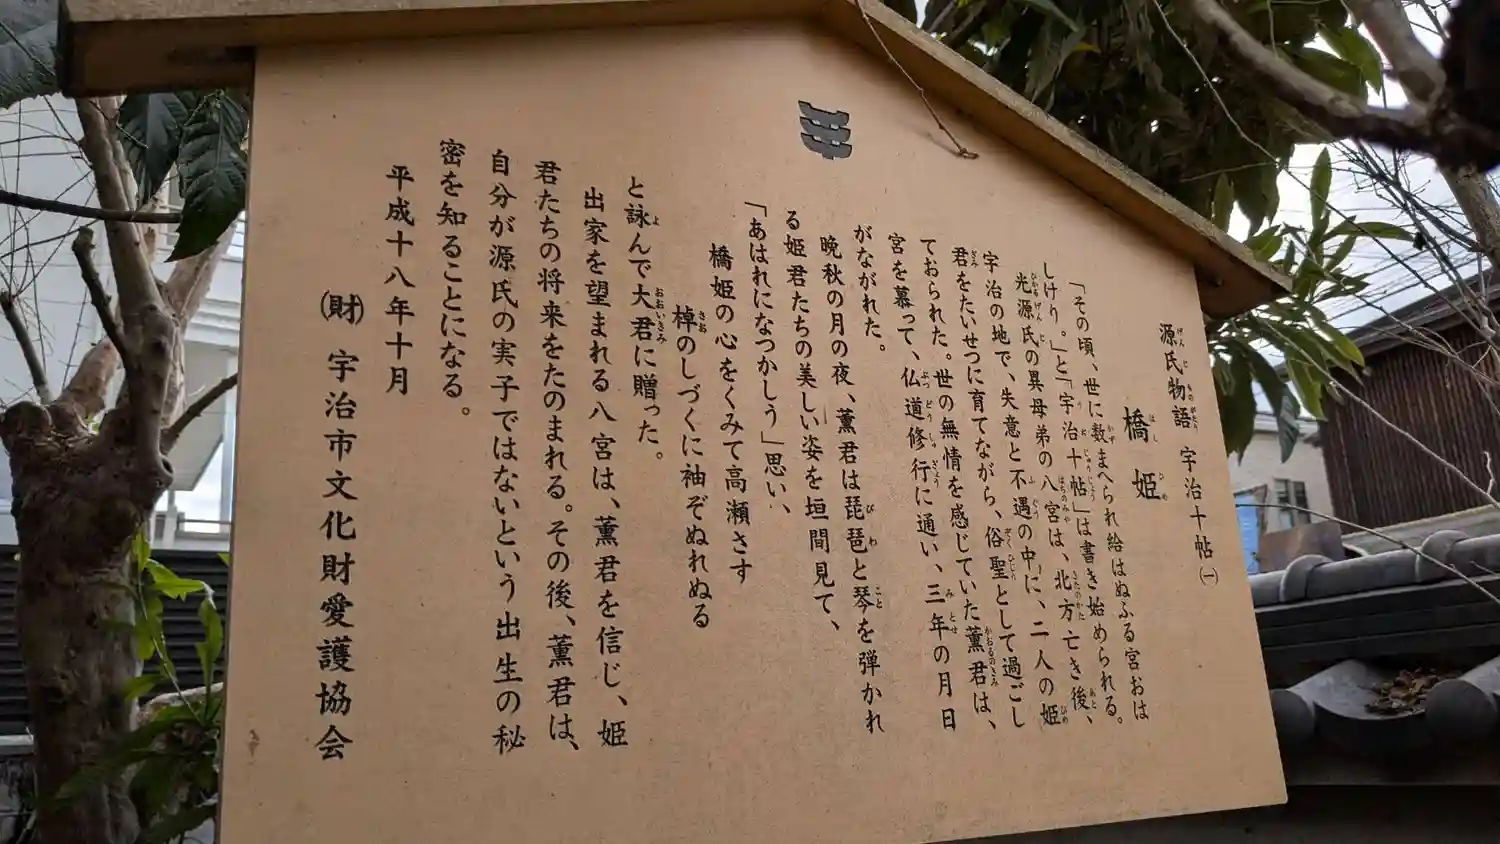 源氏物語 宇治十帖(一)
橋姫
「その頃、世に数まへられ給はぬふる宮おは
しけり。」と「宇治十帖」は書き始められる。
光源氏の異母弟の八宮は、北方亡き後、
宇治の地で、失意と不遇の中に、二人の姫
君をたいせつに育てながら、俗聖として過ごし
ておられた。世の無情を感じていた薫君は、
宮を慕って、仏道修行に通い、三年の月日
がながれた。
晩秋の月の夜、薫君は琵琶と琴を弾かれ
る姫君たちの美しい姿を垣間見て、
「あはれになつかしう」思い、
橋姫の心をくみて高瀬さす
棹のしづくに袖ぞぬれぬる
と詠んで大君に贈った。
出家を望まれる八宮は、薫君を信じ、姫
君たちの将来をたのまれる。その後、薫君は、
自分が源氏の実子ではないという出生の秘
密を知ることになる。
平成十八年十月
(財) 宇治市文化財愛護協会